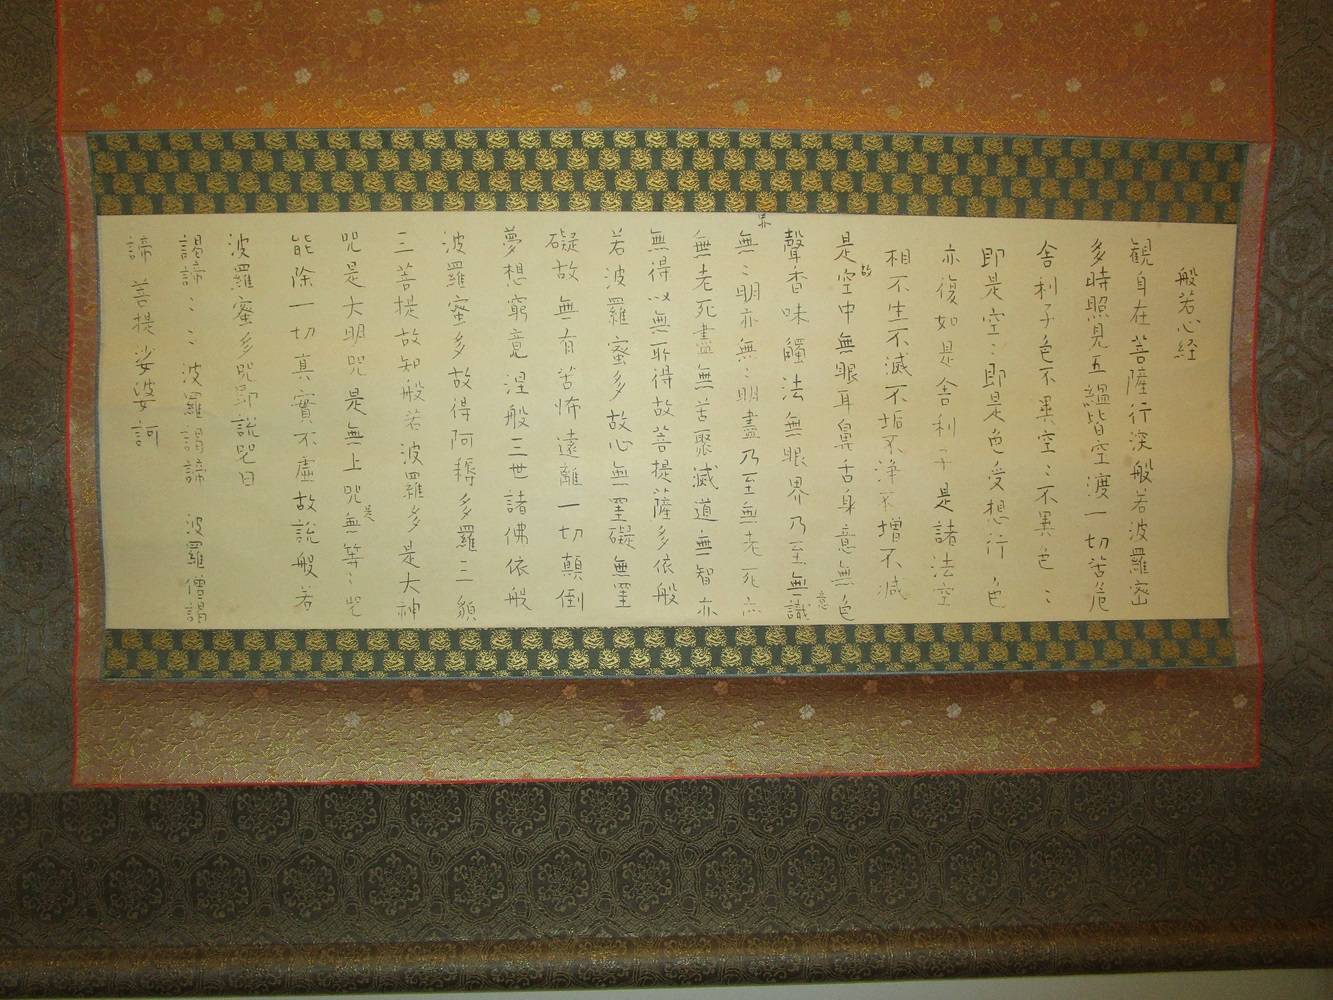 般若心経
観自在菩薩行深般若波羅密
多時照見五緼皆空渡一切苦危
舎利子色不異空〻不異色〻
即是空〻即是色受想行色
亦復如是舎利子是諸法空
相不生不滅不垢不浄不増不減
是故空中無眼耳鼻舌身意無色
聲香味觸法無眼界乃至無意識
無〻明亦無〻明盡乃至無老死亦
無老死盡無苦聚滅道無智亦
無得以無所得故菩提薩多依般
若波羅蜜多故心無罣礙無罣
礙故無有苦怖遠離一切顛倒
夢想窮意涅般三世諸佛依般
波羅蜜多故得阿耨多羅三貌
三菩提故知般若波羅多是大神
咒是大明咒是無上咒是無等〻咒
能除一切真實不虚故説般若
波羅蜜多咒即説咒曰
謁諦〻〻波羅謁諦 波羅僧謁
諦 菩提娑婆訶